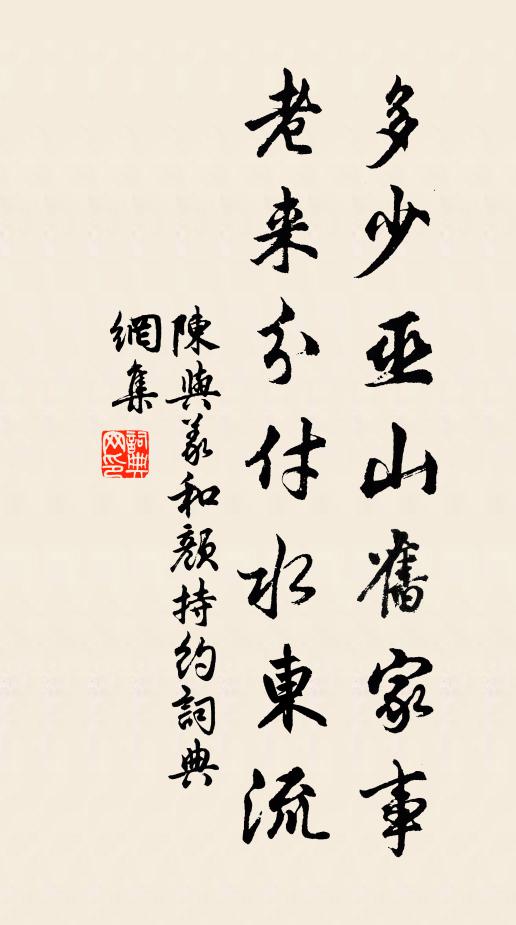 多少巫山舊家事
老来分付水東流
陳與義和顏持約詞典
網集
詞典
網印